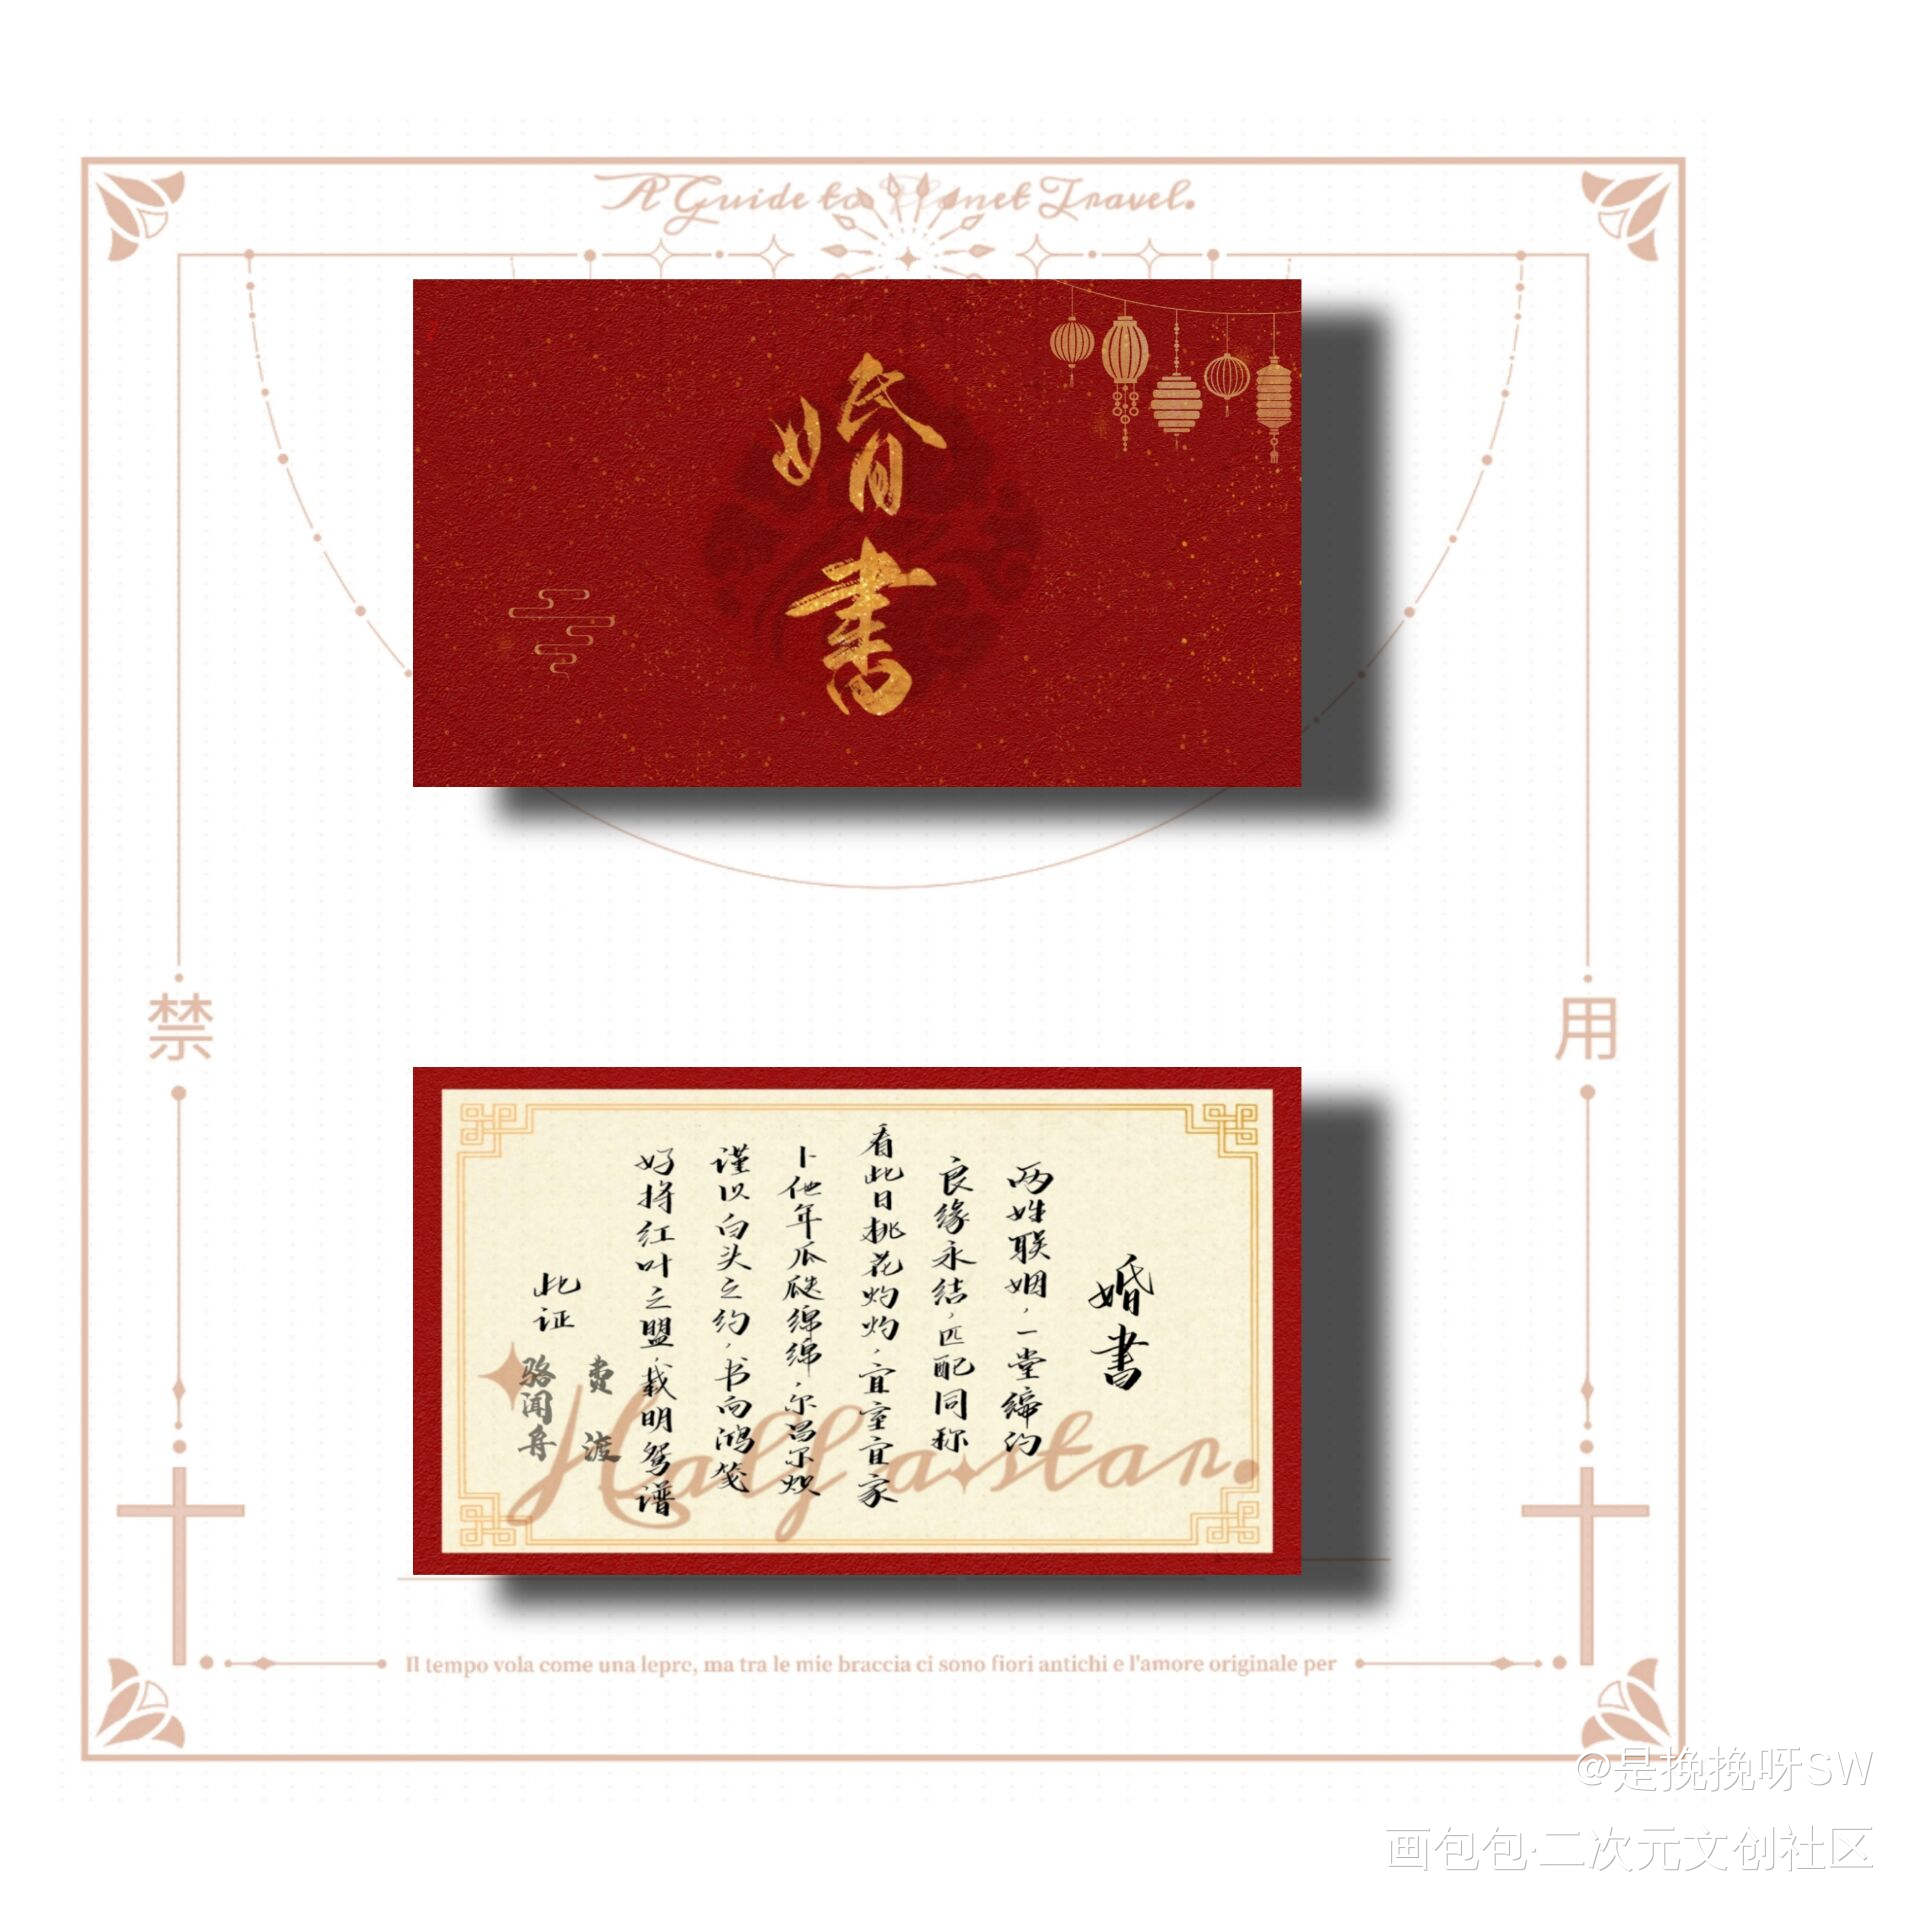 A Guide to Planet Travel.
婚
書
禁
用
婚書
两姓联姻，一堂缔约
良缘永结，匹配同称
看此日桃花灼灼，宜室宜家
卜他年瓜瓞绵绵，尔昌尔炽
谨以白头之约，书向鸿笺
好将红叶之盟，载明鸳谱
此证
费渡
骆闻舟
Half a star.
Il tempo vola come una lepre, ma tra le mie braccia ci sono fiori antichi e l'amore originale per
@是挽挽呀SW
画包包·二次元文创社区